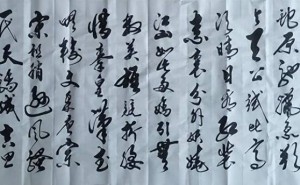 蛇原驰蜡象欲
与天公试比高
须晴日看红装
素裹分外妖娆
江山如此多娇引無
数英雄竞折腰
惜秦皇漢武
略输文采唐宗
宋祖稍逊风骚
代天骄成吉思